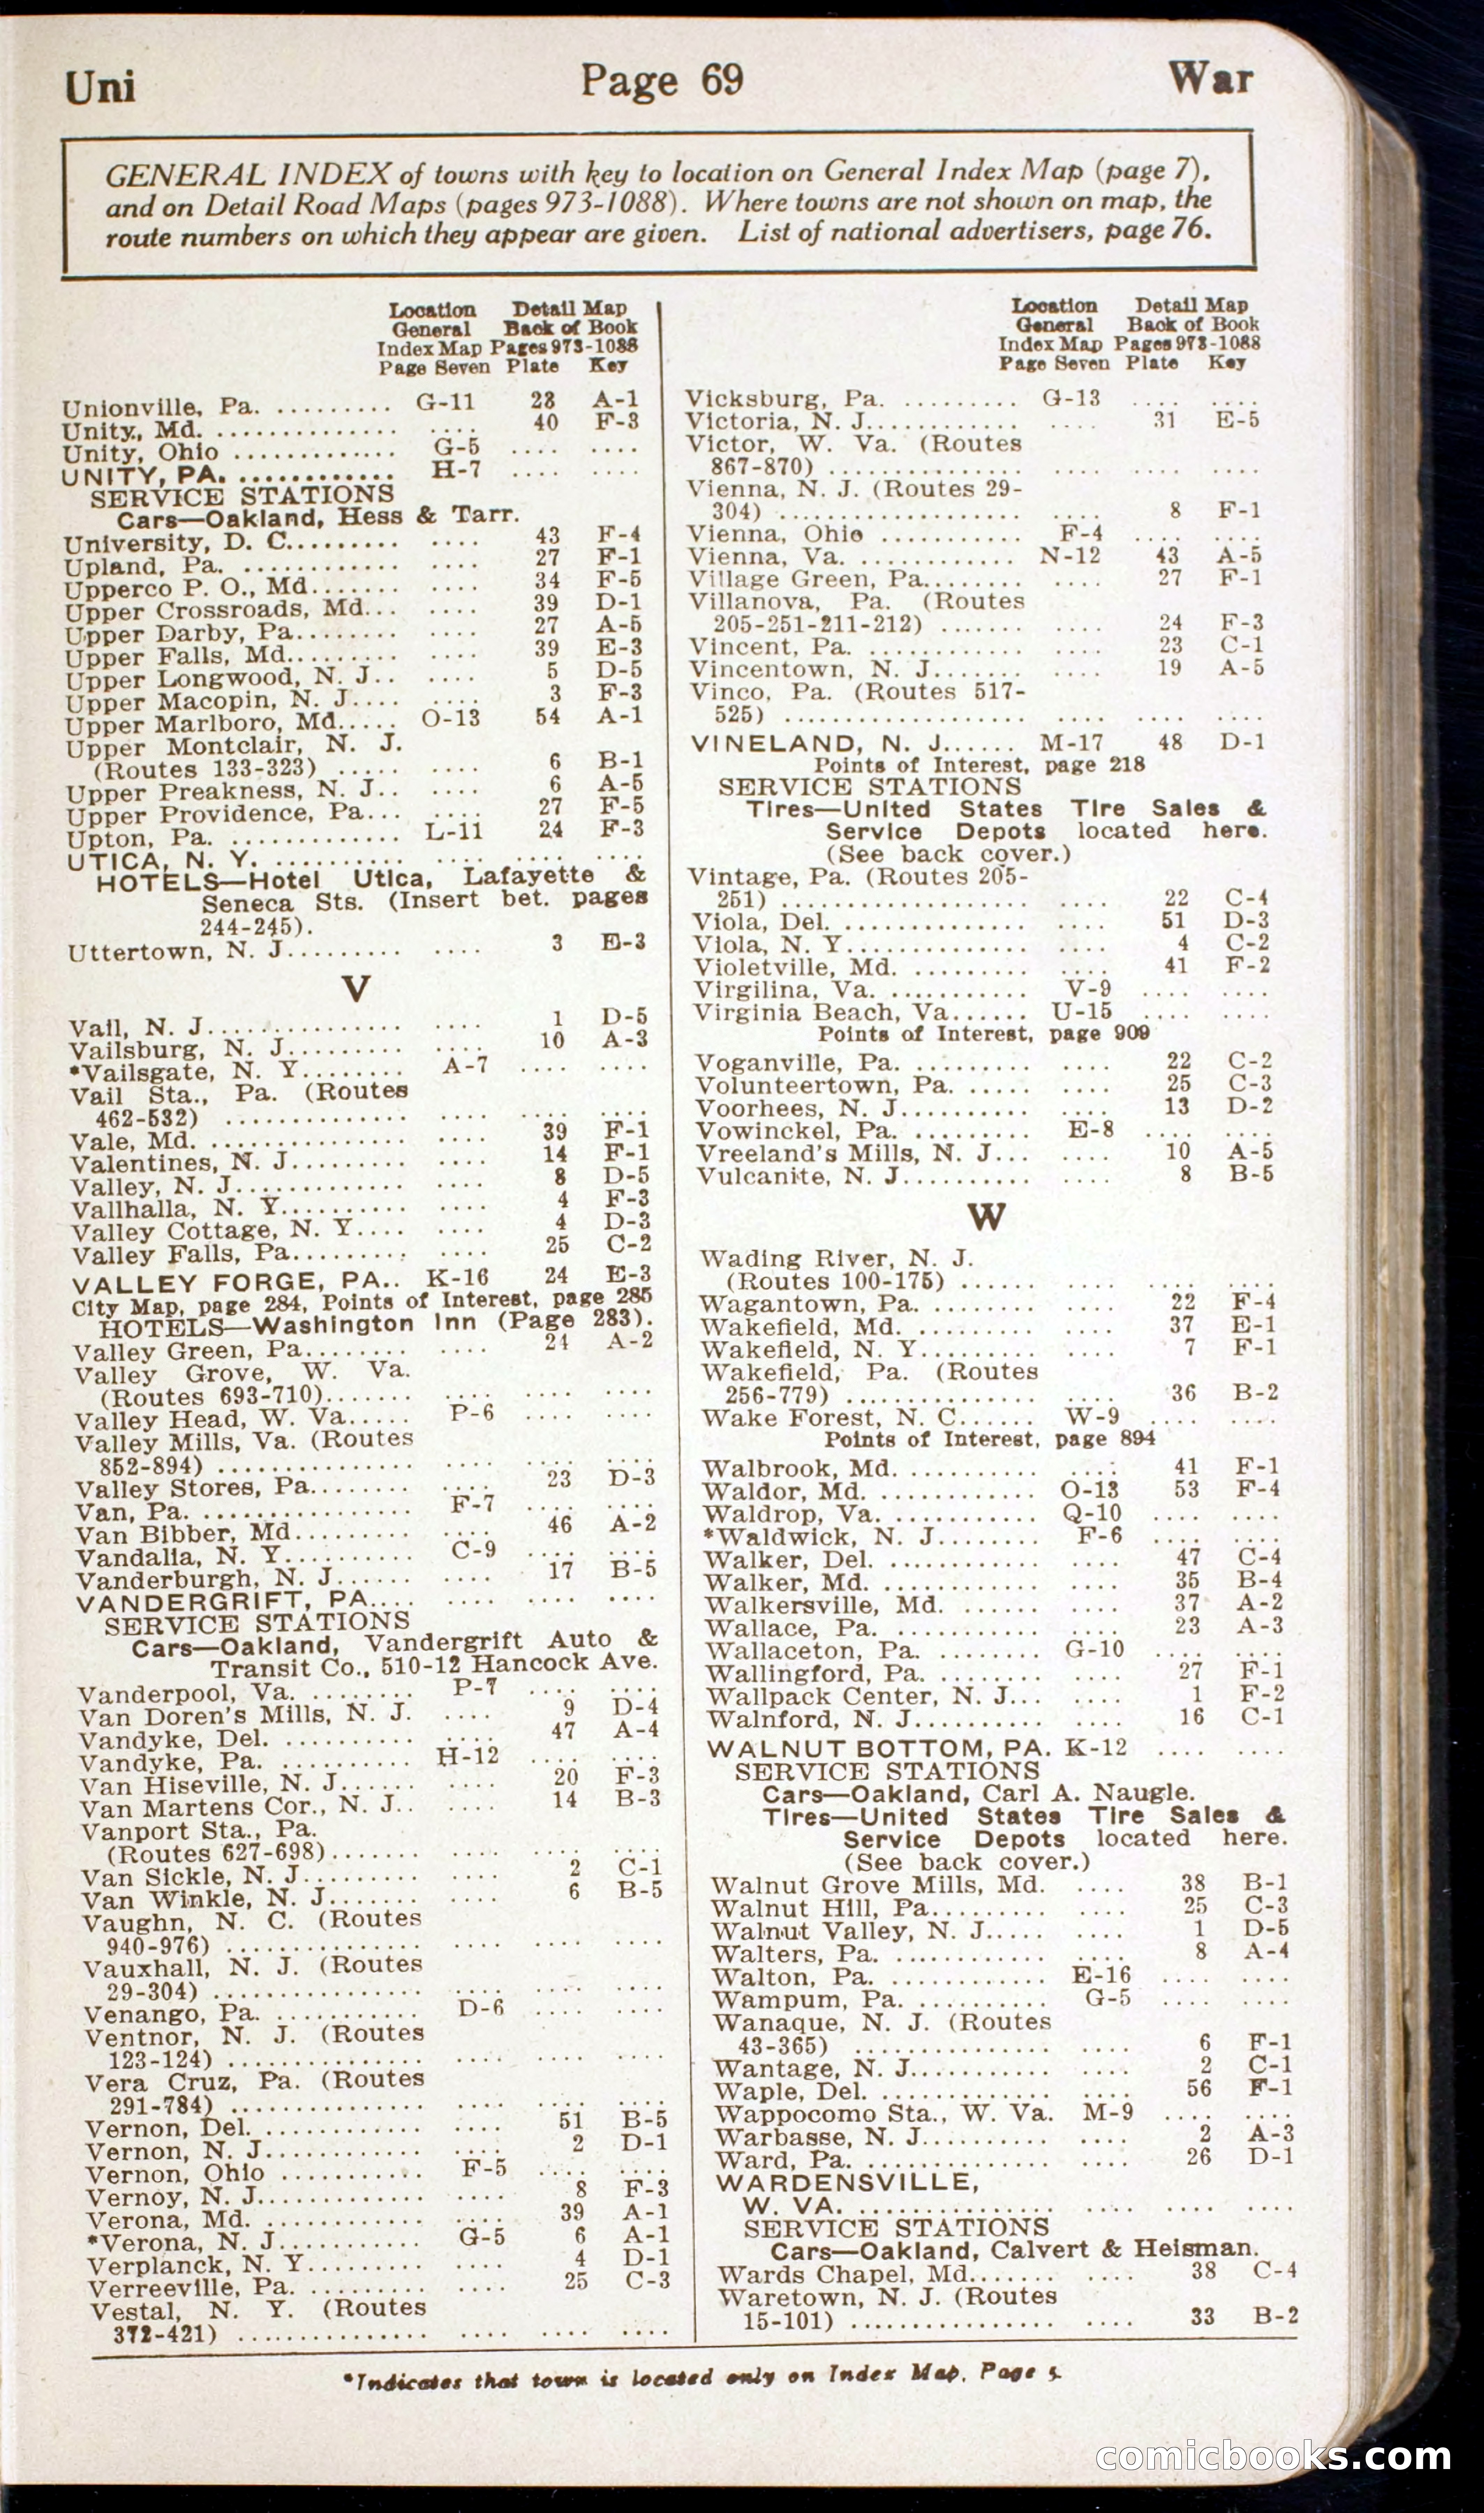 Uni Page 69 War
GENERAL INDEX of towns with key to location on General Index Map (page 7),
and on Detail Road Maps (pages 973-1088). Where towns are not shown on map, the
route numbers on which they appear are given. List of national advertisers, page 76.
Location Detail Map
General Back of Book
Index Map Pages 973-1088
Page Seven Plate Key
Unionville, Pa. .......... G-11 23 A-1
Unity, Md. .............. .... 40 F-3
Unity, Ohio ............. G-5 .... ....
UNITY, PA. ............ H-7 .... ....
SERVICE STATIONS
Cars—Oakland, Hess & Tarr.
University, D. C......... .... 43 F-4
Upland, Pa. ............ .... 27 F-1
Upperco P. O., Md....... .... 34 F-5
Upper Crossroads, Md... .... 39 D-1
Upper Darby, Pa........ .... 27 A-5
Upper Falls, Md......... .... 39 E-3
Upper Longwood, N. J.. .... 5 D-5
Upper Macopin, N. J.... .... 3 F-3
Upper Marlboro, Md..... O-13 54 A-1
Upper Montclair, N. J.
(Routes 133-323) ..... .... 6 B-1
Upper Preakness, N. J.. .... 6 A-5
Upper Providence, Pa... .... 27 F-5
Upton, Pa. ............. L-11 24 F-3
UTICA, N. Y. .......... .... .... ....
HOTELS—Hotel Utica, Lafayette &
Seneca Sts. (Insert bet. pages
244-245).
Uttertown, N. J......... .... 3 E-3
V
Vail, N. J............... .... 1 D-5
Vailsburg, N. J......... .... 10 A-3
*Vailsgate, N. Y........ A-7 .... ....
Vail Sta., Pa. (Routes
462-532) .............. .... .... ....
Vale, Md. .............. .... 39 F-1
Valentines, N. J......... .... 14 F-1
Valley, N. J............. .... 8 D-5
Vallhalla, N. Y.......... .... 4 F-3
Valley Cottage, N. Y.... .... 4 D-3
Valley Falls, Pa......... .... 25 C-2
VALLEY FORGE, PA.. K-16 24 E-3
City Map, page 284, Points of Interest, page 285
HOTELS—Washington Inn (Page 283).
Valley Green, Pa........ .... 24 A-2
Valley Grove, W. Va.
(Routes 693-710)....... .... .... ....
Valley Head, W. Va..... P-6 .... ....
Valley Mills, Va. (Routes
852-894) ............... .... .... ....
Valley Stores, Pa........ .... 23 D-3
Van, Pa. ................ F-7 .... ....
Van Bibber, Md......... .... 46 A-2
Vandalia, N. Y.......... C-9 .... ....
Vanderburgh, N. J...... .... 17 B-5
VANDERGRIFT, PA.... .... .... ....
SERVICE STATIONS
Cars—Oakland, Vandergrift Auto &
Transit Co., 510-12 Hancock Ave.
Vanderpool, Va. ........ P-7 .... ....
Van Doren's Mills, N. J. .... 9 D-4
Vandyke, Del. .......... .... 47 A-4
Vandyke, Pa. .......... H-12 .... ....
Van Hiseville, N. J...... .... 20 F-3
Van Martens Cor., N. J.. .... 14 B-3
Vanport Sta., Pa.
(Routes 627-698)....... .... .... ....
Van Sickle, N. J......... .... 2 C-1
Van Winkle, N. J....... .... 6 B-5
Vaughn, N. C. (Routes
940-976) ............... .... .... ....
Vauxhall, N. J. (Routes
29-304) ................ .... .... ....
Venango, Pa. ........... D-6 .... ....
Ventnor, N. J. (Routes
123-124) ............... .... .... ....
Vera Cruz, Pa. (Routes
291-784) ............... .... .... ....
Vernon, Del. ............ .... 51 B-5
Vernon, N. J............ .... 2 D-1
Vernon, Ohio ........... F-5 .... ....
Vernoy, N. J............. .... 8 F-3
Verona, Md. ............ .... 39 A-1
*Verona, N. J........... G-5 6 A-1
Verplanck, N. Y......... .... 4 D-1
Verreeville, Pa. ......... .... 25 C-3
Vestal, N. Y. (Routes
372-421) ............... .... .... ....
Location Detail Map
General Back of Book
Index Map Pages 973-1088
Page Seven Plate Key
Vicksburg, Pa. ......... G-13 .... ....
Victoria, N. J............ .... 31 E-5
Victor, W. Va. (Routes
867-870) ............... .... .... ....
Vienna, N. J. (Routes 29-
304) ................... .... 8 F-1
Vienna, Ohio ........... F-4 .... ....
Vienna, Va. ............. N-12 43 A-5
Village Green, Pa........ .... 27 F-1
Villanova, Pa. (Routes
205-251-211-212) ....... .... 24 F-3
Vincent, Pa. ............ .... 23 C-1
Vincentown, N. J....... .... 19 A-5
Vinco, Pa. (Routes 517-
525) ................... .... .... ....
VINELAND, N. J...... M-17 48 D-1
Points of Interest, page 218
SERVICE STATIONS
Tires—United States Tire Sales &
Service Depots located here.
(See back cover.)
Vintage, Pa. (Routes 205-
251) ................... .... 22 C-4
Viola, Del. .............. .... 51 D-3
Viola, N. Y.............. .... 4 C-2
Violetville, Md. ......... .... 41 F-2
Virgilina, Va. ........... V-9 .... ....
Virginia Beach, Va...... U-15 .... ....
Points of Interest, page 909
Voganville, Pa. ......... .... 22 C-2
Volunteertown, Pa. ..... .... 25 C-3
Voorhees, N. J.......... .... 13 D-2
Vowinckel, Pa. ......... E-8 .... ....
Vreeland's Mills, N. J... .... 10 A-5
Vulcanite, N. J.......... .... 8 B-5
W
Wading River, N. J.
(Routes 100-175) ...... .... .... ....
Wagantown, Pa. ........ .... 22 F-4
Wakefield, Md. ......... .... 37 E-1
Wakefield, N. Y......... .... 7 F-1
Wakefield, Pa. (Routes
256-779) ............... .... 36 B-2
Wake Forest, N. C...... W-9 .... ....
Points of Interest, page 894
Walbrook, Md. .......... .... 41 F-1
Waldor, Md. ............ O-13 53 F-4
Waldrop, Va. ........... Q-10 .... ....
*Waldwick, N. J........ F-6 .... ....
Walker, Del. ............ .... 47 C-4
Walker, Md. ............ .... 35 B-4
Walkersville, Md. ...... .... 37 A-2
Wallace, Pa. ........... .... 23 A-3
Wallaceton, Pa. ........ G-10 .... ....
Wallingford, Pa. ........ .... 27 F-1
Wallpack Center, N. J... .... 1 F-2
Walnford, N. J.......... .... 16 C-1
WALNUT BOTTOM, PA. K-12 .... ....
SERVICE STATIONS
Cars—Oakland, Carl A. Naugle.
Tires—United States Tire Sales &
Service Depots located here.
(See back cover.)
Walnut Grove Mills, Md. .... 38 B-1
Walnut Hill, Pa......... .... 25 C-3
Walnut Valley, N. J..... .... 1 D-5
Walters, Pa. ............ .... 8 A-4
Walton, Pa. ............ E-16 .... ....
Wampum, Pa. .......... G-5 .... ....
Wanaque, N. J. (Routes
43-365) ............... .... 6 F-1
Wantage, N. J........... .... 2 C-1
Waple, Del. ............. .... 56 F-1
Wappocomo Sta., W. Va. M-9 .... ....
Warbasse, N. J.......... .... 2 A-3
Ward, Pa. .............. .... 26 D-1
WARDENSVILLE,
W. VA. ................ .... .... ....
SERVICE STATIONS
Cars—Oakland, Calvert & Heisman.
Wards Chapel, Md....... .... 38 C-4
Waretown, N. J. (Routes
15-101) ................ .... 33 B-2
*Indicates that town is located only on Index Map, Page 5
comicbooks.com